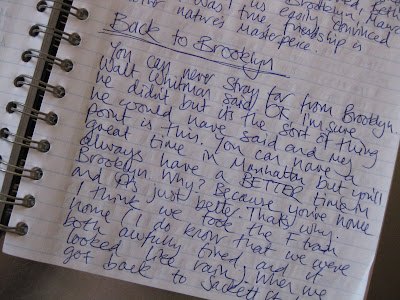 Bethe
Was I Brooklyn, Mano
I this easily convinced
was true friendship is
nature's masterpiece.
Back to Brooklyn
You can never stray far from Brooklyn.
Walt Whitman said. OK I'm sure
he didn't but it's the sort of thing
he would have said and my
point is this. You can have a
great time in Manhattan but you'll
always have a BETTER time in
Brooklyn. Why? Because you're home
and it's just better. That's why.
I think we took the F train
home. I do know that we were
both awfully tired and it
looked like rain. When we
got back to Sackett St